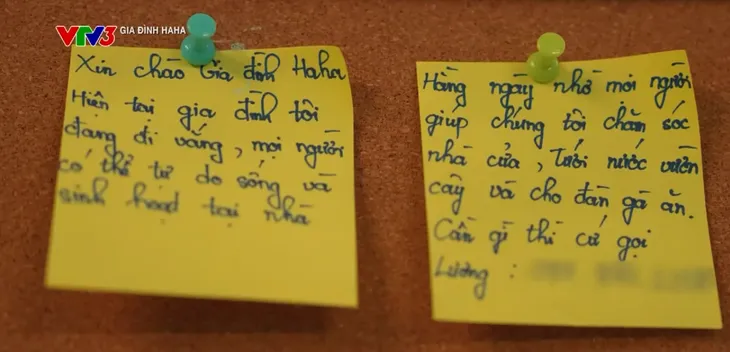 VTV3 GIA ĐÌNH HAHA
Xin chào Gia đình Haha
Hiện tại gia đình tôi
đang đi vắng, mọi người
có thể tự do sống và
sinh hoạt tại nhà
Hàng ngày nhờ mọi người
giúp chúng tôi chăm sóc
nhà cửa, tưới nước vườn
cây và cho đàn gà ăn.
Cần gì thì cứ gọi
Lương :